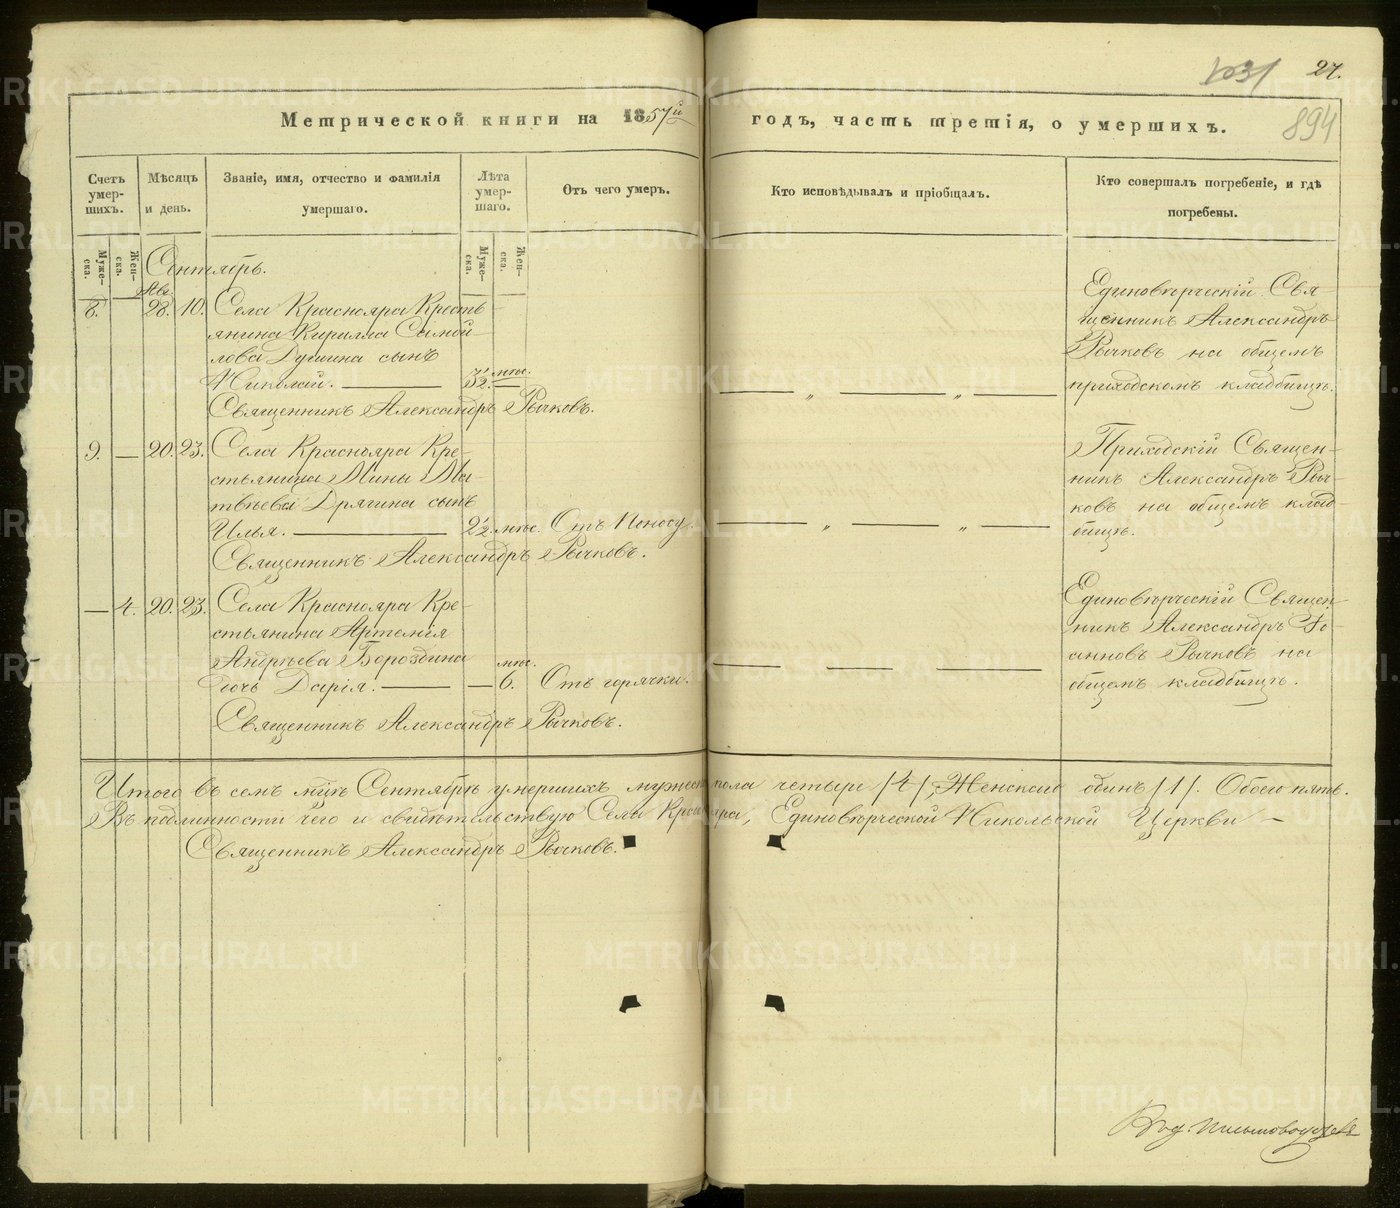 1031 27.
894
Метрической книги на 1857й годъ, часть третія, о умершихъ.
Счетъ умер-шихъ.
Мѣсяцъ и день.
Званіе, имя, отчество и фамилія умершаго.
Лѣта умер-шаго.
Отъ чего умеръ.
Кто исповѣдывалъ и пріобщалъ.
Кто совершалъ погребеніе, и гдѣ погребены.
Муже-ска.
Жен-ска.
Муже-ска.
Жен-ска.
Сентябрь.
Авг.
8. — 28. 10. Села Краснояра Кресть-
янина Кирилла Самой-
лова Дущина сынъ
Николай. — 3½ мѣс. — „ — „ —
Священникъ Александръ Рычковъ.
Единовѣрческій Свя-
щенникъ Александръ
Рычковъ на общемъ
приходскомъ кладбищѣ.
9. — 20. 23. Села Краснояра Кре-
стьянина Мины Ма-
твѣева Дрягина сынъ
Илья. — 2½ мѣс. Отъ поносу. — „ — „ —
Священникъ Александръ Рычковъ.
Приходскій Священ-
никъ Александръ Рыч-
ковъ на общемъ клад-
бищѣ.
— 4. 20. 23. Села Краснояра Кре-
стьянина Артемія
Андрѣева Бороздина
дочь Дарія. — — 6. мѣс. Отъ горячки. — — —
Священникъ Александръ Рычковъ.
Единовѣрческій Священ-
никъ Александръ Іо-
анновъ Рычковъ на
общемъ кладбищѣ.
Итого въ семъ мцѣ Сентябрѣ умершихъ мужеска пола четыре /4/, Женскаго одинъ /1/. Обоего пять.
Въ подлинности чего и свидѣтельствую Села Краснояра, Единовѣрческой Никольской Церкви —
Священникъ Александръ Рычковъ.
METRIKI.GASO-URAL.RU